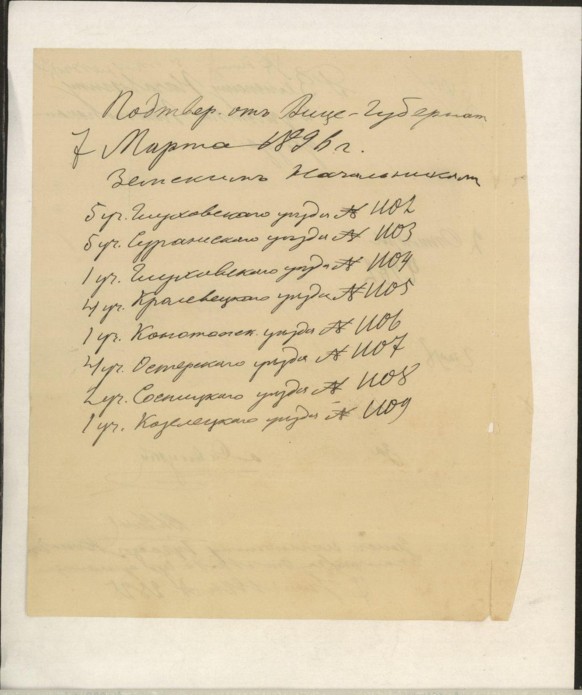 Подтвер. отъ Вице-Губернат
7 Марта 1896 г.
Земскимъ Начальникам
5 уч. Глуховскаго уезда № 1102
5 уч. Суражскаго уезда № 1103
1 уч. Глуховскаго уезда № 1104
4 уч. Кролевецкаго уезда № 1105
1 уч. Конотопск. уезда № 1106
4 уч. Остерскаго уезда № 1107
2 уч. Сосницкаго уезда № 1108
1 уч. Козелецкаго уезда № 1109